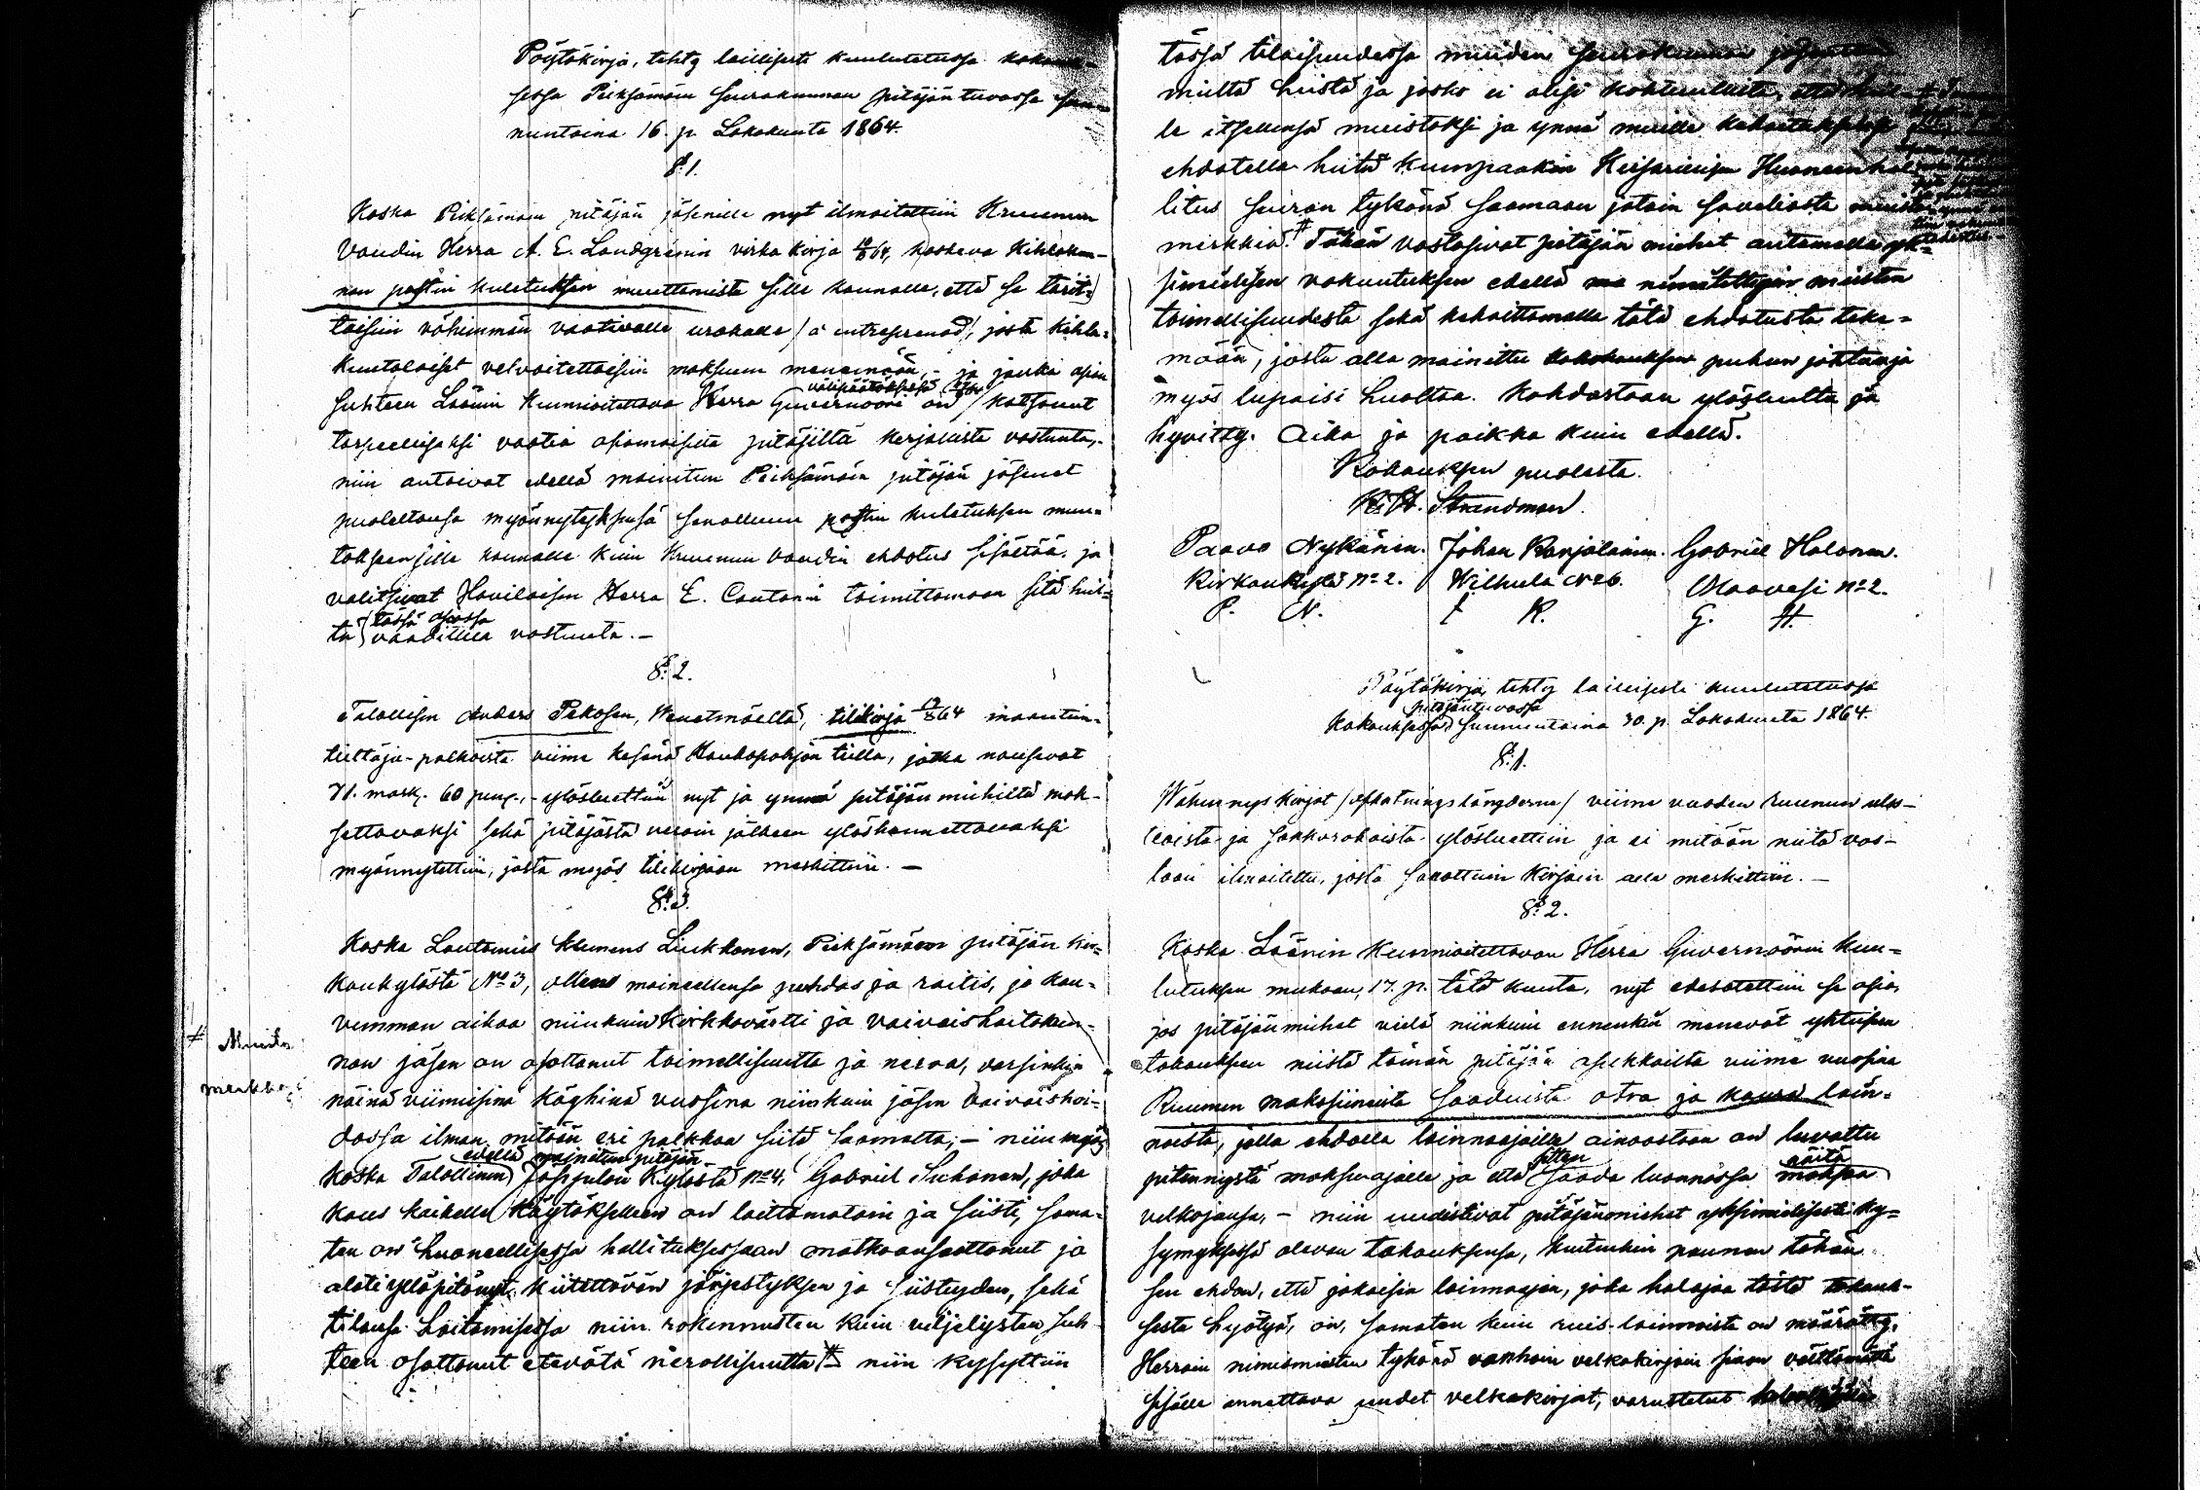 Pöytäkirja, tehty laillisesti kuulutetussa kokouk-
sessa Pieksämäen seurakunnan pitäjän tuvassa sun-
nuntaina 16. p. Lokakuuta 1864.
§ 1.
Koska Pieksämäen pitäjän jäsenille nyt ilmoitettiin Kruunun
Voudin Herra A. E. Landgrénin virka kirja 64, koskeva Kihlakun-
nan postin kuletuksen muuttamista sille kannalle, että se tarit-
taisiin vähimmän vaativalle urakalle / à entreprenad /, josta kihla-
kuntalaiset velvoitettaisiin maksuun menemään, - ja jonka asian
suhteen Läänin Kunnioitettava Herra Guvernööri on välipäätöksessä katsonut
tarpeelliseksi vaatia asianomaisilta pitäjiltä kirjallista vastausta,
niin antoivat edellä mainitun Pieksämäen pitäjän jäsenet
puolestansa myönnytyksensä sanottuun postin kuletuksen muu-
tokseen sille kannalle kuin Kruunun voudin ehdotus sisältää, ja
valitsivat Hovilaisen Herra E. Cantonin toimittamaan sitä heil-
tä tässä asiassa vaadittua vastausta. -
§ 2.
Talollisen Anders Pekosen, Venetmäeltä, tilikirja 64 maantien-
tiettäjä-palkoista viime kesänä Haukopohjan tiellä, jotka nousevat
71. mark. 60 penn., - ylösluettiin nyt ja ynnä pitäjän miehiltä mak-
settavaksi sekä pitäjästä veroin jälkeen ylöskannettavaksi
myönnytettiin, josta myös tilikirjaan merkittiin. -
§ 3.
Koska Lautamies Klemens Liukkonen, Pieksämäen pitäjän kir-
konkylästä No 3, ollen maineellensa puhdas ja raitis, ja kau-
vemman aikaa niinkuin Kirkkoväärtti ja vaivaishoitokun-
nan jäsen on osottanut toimellisuutta ja neroa, varsinkin
# Muisto
merkkiä
näinä viimeisinä köyhinä vuosina niinkuin jäsen vaivaishoi-
dossa ilman mitään eri palkkaa siitä saamatta; - niin myös
koska Talollinen edellä mainitun pitäjän kylästä No 4, Gabriel Suhonen, joka
kans kaikelle käytökselleen on laittamatoin ja siisti, sama-
ten on huoneellisessa hallituksessaan matkaansaattanut ja
aloti ylläpitänyt kiitettävän järjestyksen ja siisteyden, sekä
tilansa hoitamisessa niin rakennusten kuin viljelysten suh-
teen osottanut etevätä nerollisuutta # niin kysyttiin
tässä tilaisuudessa muiden seurakunnan jäsenten
mieltä heistä ja josko ei olisi kohtuullista, että heil-
le itsellensä muistoksi ja ynnä muille kehoitukseksi
ehdotella heitä kumpaakin Keisarillisen Huoneenhal-
litus Seuran tykönä saamaan jotain soveliasta muisto
merkkiä. # Tähän vastasivat pitäjän miehet antamalla yk-
simielisen vakuutuksen edellä nimitettyin miesten
toimellisuudesta sekä kehoittamalla tätä ehdotusta teke-
mään, josta alla mainittu puheen johtaja
myös lupaisi huoltaa. Kohdastaan ylösluettu ja
hyvitty. Aika ja paikka kuin edellä.
Kokouksen puolesta.
K. H. Strandman.
Paavo Nykänen. Johan Karjalainen. Gabriel Halonen.
Kirkonkylä No 2. Wilhula No 6. Maavesi No 2.
P. N. I K. G. H.
Pöytäkirja, tehty laillisesti kuulutetussa
Kokouksessa pitäjäntuvassa sunnuntaina 30. p. Lokakuuta 1864.
§ 1.
Wähennyskirjat / afkortningslängderna / viime vuoden kruunun ulos-
teoista ja sakkorahoista ylösluettiin ja ei mitään niitä vas-
taan ilmoitettu, josta sanottuin kirjain alle merkittiin. -
§ 2.
Koska Läänin Kunnioitettavan Herra Guvernöörin kuu-
lutuksen mukaan, 17. p. tätä kuuta, nyt edesotettiin se asia,
jos pitäjänmiehet vielä niinkuin ennenkin menevät yhteiseen
takaukseen niistä tämän pitäjän asukkailta viime vuosina
Kruunun makasiineista saaduista otra ja kaura lain-
noista, jolla ehdolla lainnaajoille ainoastaan on luvattu
pitennystä maksuajalle ja että sitten saada luonnossa näitä maksaa
velkojansa, - niin uudistivat pitäjänmiehet yksimielisesti ky-
symyksessä olevan takauksensa, kuitenkin pannen tähän
sen ehdon, että jokaisen lainnaajan, joka halajaa tästä takauk-
sesta hyötyä, on, samaten kuin ruis-lainnoista on määrätty,
Herrain nimismiesten tykönä vanhain velkakirjain siaan välttämättä
sisälle annettava uudet velkakirjat, varustetut